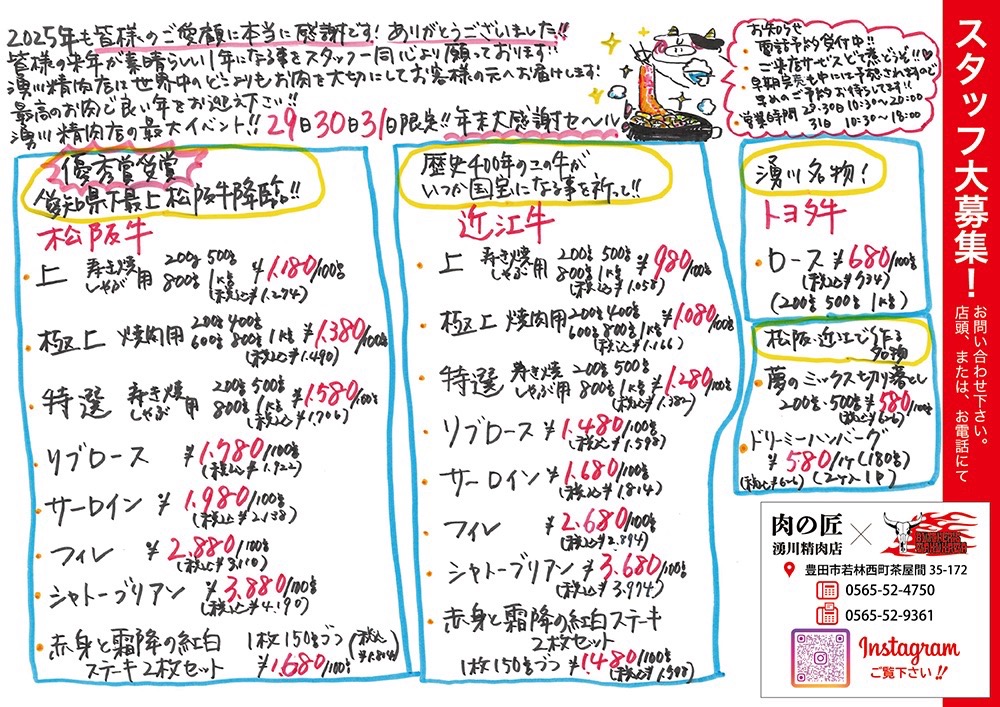 2025年も皆様のご愛顧に本当に感謝です！ありがとうございました!!
皆様の来年が素晴らしい1年になる事をスタッフ一同心より願っております!
湧川精肉店は世界中のどこよりもお肉を大切にしてお客様の元へお届けします!
最高のお肉で良い年をお迎え下さい!!
湧川精肉店の最大イベント!! 29日30日31日限定!! 年末大感謝セール
お知らせ
・電話予約受付中!!
・ご来店サービスとて
早期完売も中には予想されますので
早めのご予約お待ちします!!
・営業時間 29.30日 10:30〜20:00
31日 10:30〜18:00
優秀賞受賞
愛知県下最上松阪牛降臨!!
松阪牛
・上 寿き焼 しゃぶ用 200g 500g 800g 1kg ¥1,180/100g
(税込¥1,274)
・極上 焼肉用 200g 400g 600g 800g 1kg ¥1,380/100g
(税込¥1,490)
・特選 寿き焼 しゃぶ用 200g 500g 800g 1kg ¥1,580/100g
(税込¥1,706)
・リブロース ¥1,780/100g
(税込¥1,922)
・サーロイン ¥1,980/100g
(税込¥2,138)
・フィレ ¥2,880/100g
(税込¥3,110)
・シャトーブリアン ¥3,880/100g
(税込¥4,190)
・赤身と霜降の紅白 1枚150gづつ (税込¥1,814)
ステーキ2枚セット ¥1,680/100g
歴史400年のこの牛が
いつか国宝になる事を祈って!!
近江牛
・上 寿き焼 しゃぶ用 200g 500g 800g 1kg ¥980/100g
(税込¥1,058)
・極上 焼肉用 200g 400g 600g 800g 1kg ¥1,080/100g
(税込¥1,166)
・特選 寿き焼 しゃぶ用 200g 500g 800g 1kg ¥1,280/100g
(税込¥1,382)
・リブロース ¥1,480/100g
(税込¥1,598)
・サーロイン ¥1,680/100g
(税込¥1,814)
・フィレ ¥2,680/100g
(税込¥2,894)
・シャトーブリアン ¥3,680/100g
(税込¥3,974)
・赤身と霜降の紅白ステーキ
2枚セット
1枚150gづつ ¥1,480/100g
(税込¥1,598)
湧川名物!
トヨタ牛
・ロース ¥680/100g
(税込¥734)
(200g 500g 1kg)
松阪・近江で作る
名物
・夢のミックス切り落とし
200g・500g ¥580/100g
(税込¥626)
・ドリーミーハンバーグ
¥580/1ケ(180g)
(税込¥626) (2ケ入1P)
スタッフ大募集！
お問い合わせ下さい。
店頭、または、お電話にて
肉の匠
湧川精肉店
×
豊田市若林西町茶屋間 35-172
0565-52-4750
0565-52-9361
Instagram
ご覧下さい!!